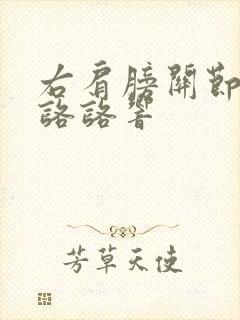 右肩膀關節
詻詻響
芳草天使